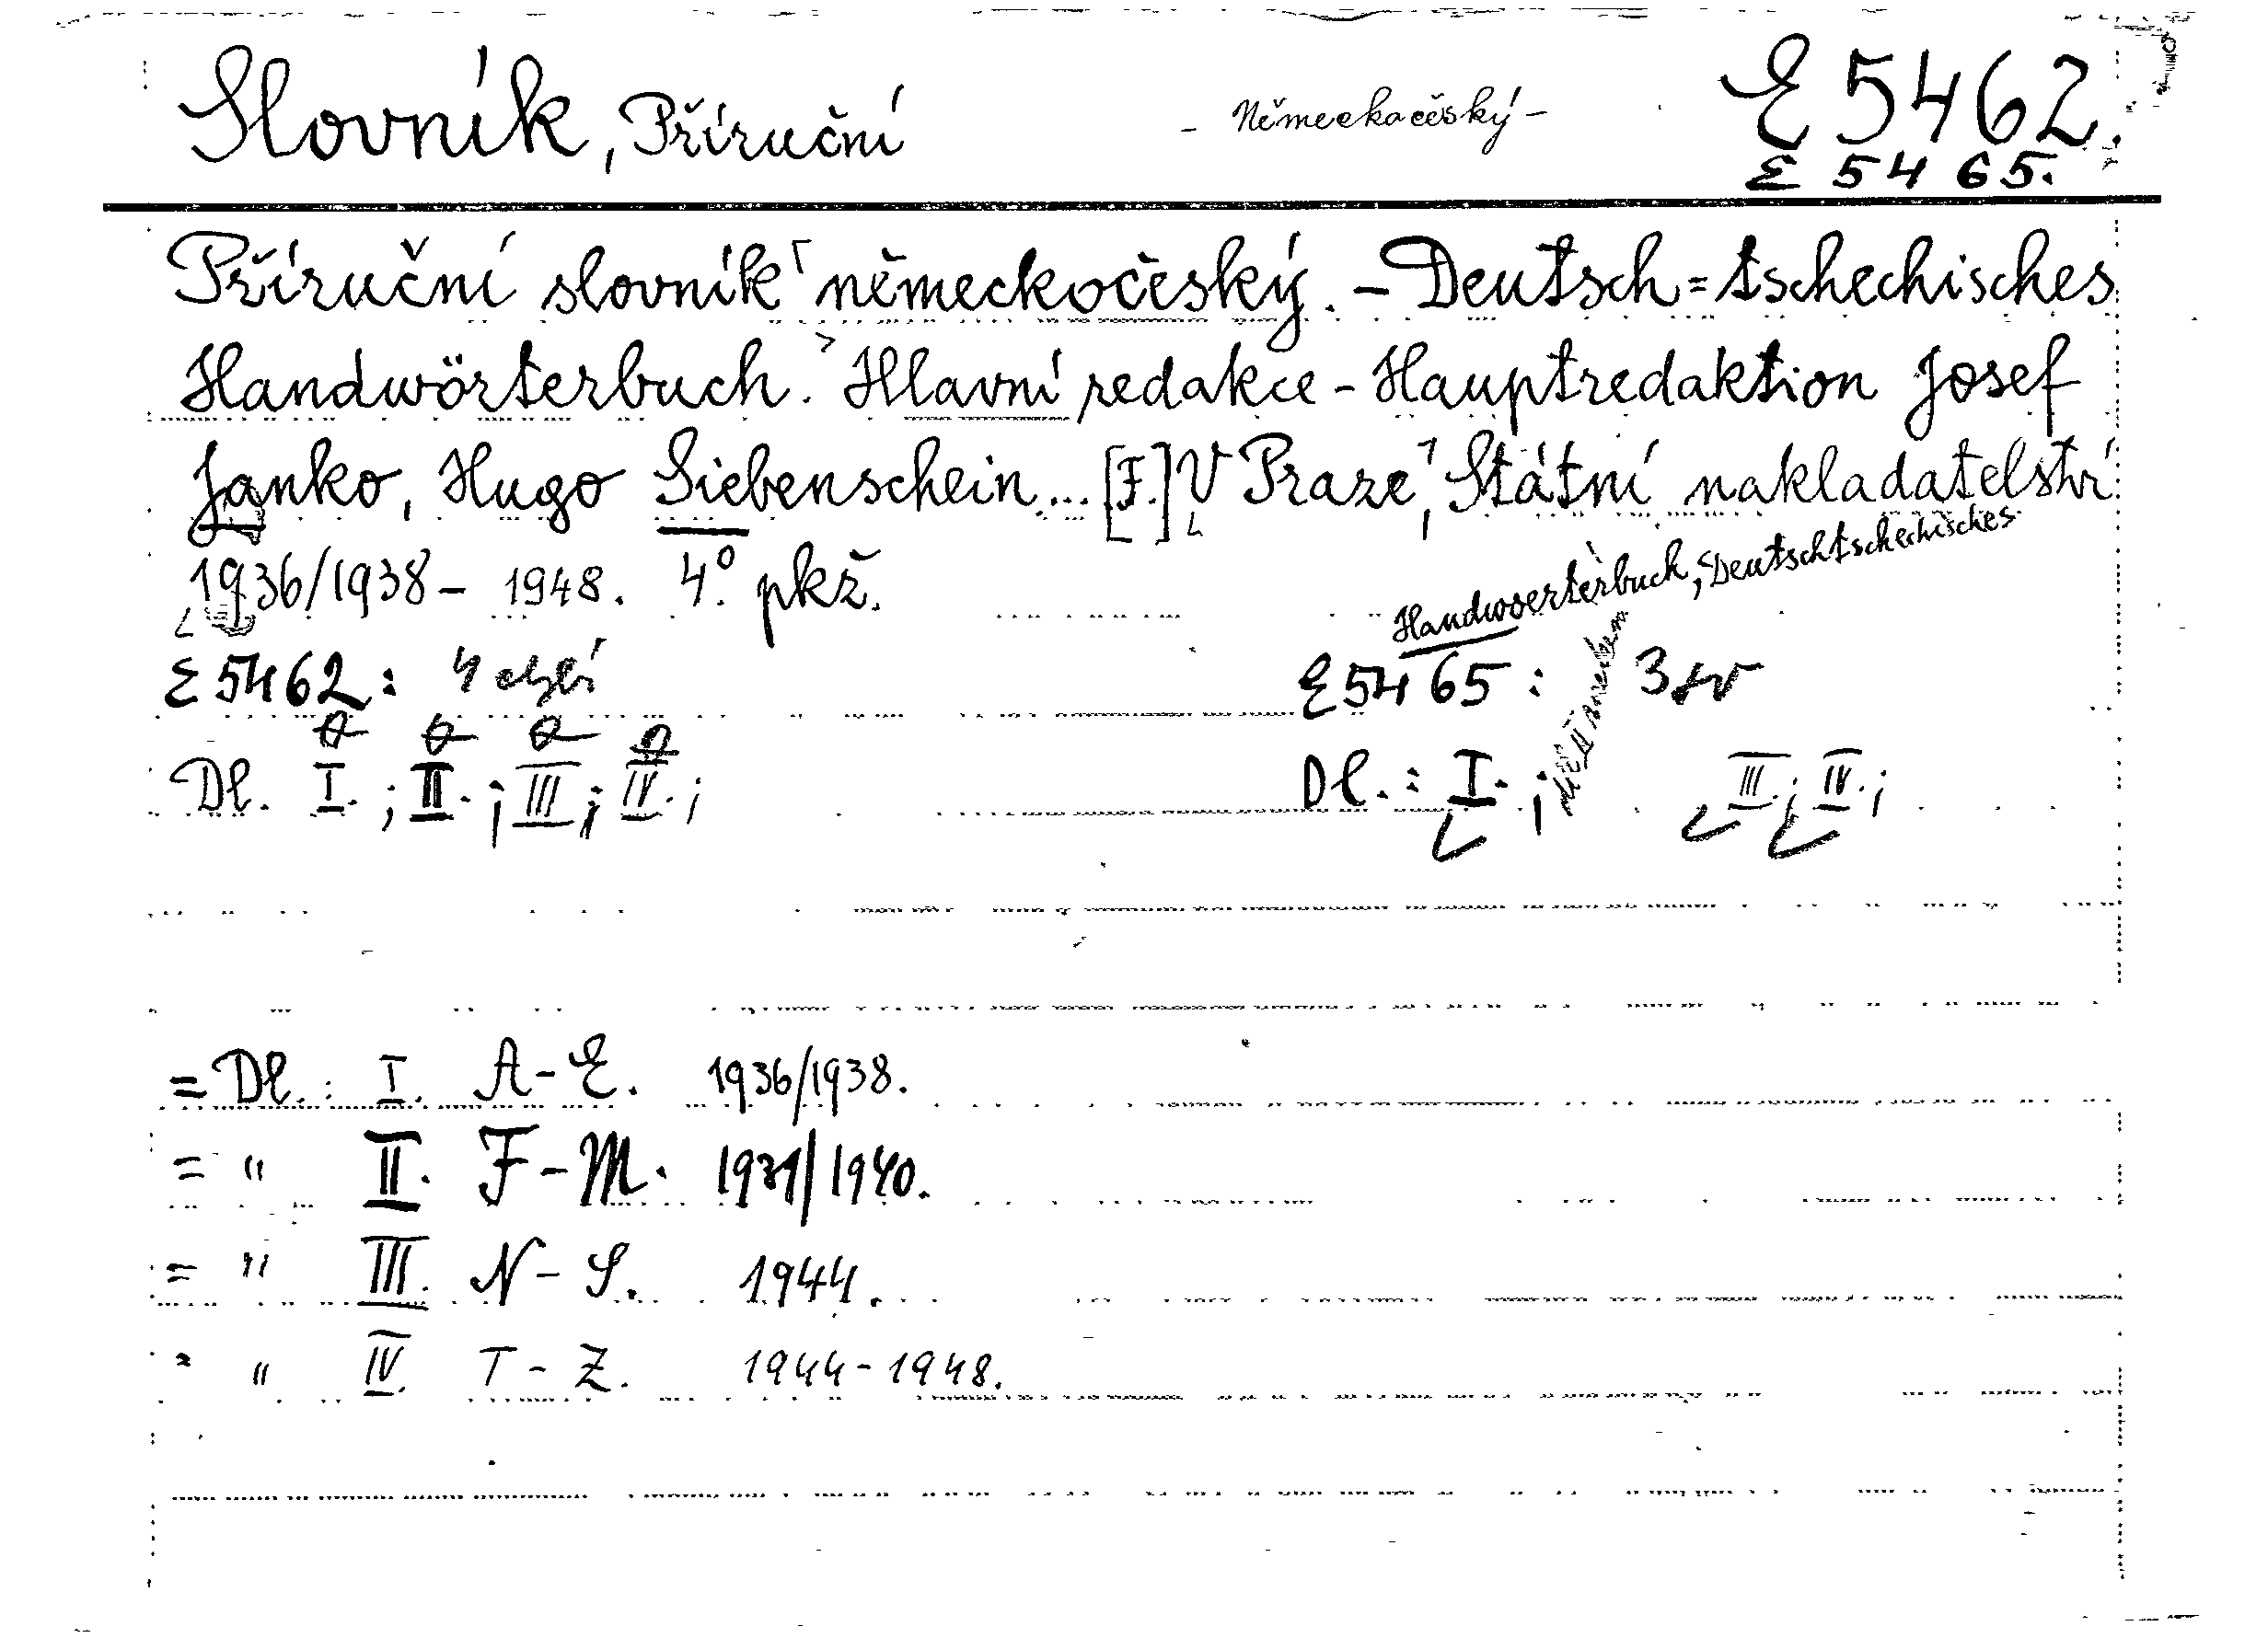 Slovník, Příruční - Německočeský - E 5462.
E 5465.
Příruční slovník německočeský. - Deutsch=tschechisches
Handwörterbuch. Hlavní redakce - Hauptredaktion Josef
Janko, Hugo Siebenschein... [F.] V Praze, Státní nakladatelství
1936/1938 - 1948. 4° pkž.
Handwoerterbuch, Deutschtschechisches
E 5462: 4 chybí E 5465: 3 sv
Dl. I.; II.; III; IV.; Dl.: I.; III.; IV.;
= Dl.: I. A-E. 1936/1938.
= " II. F-M. 1939/1940.
= " III. N-S. 1944.
= " IV. T-Z. 1944-1948.